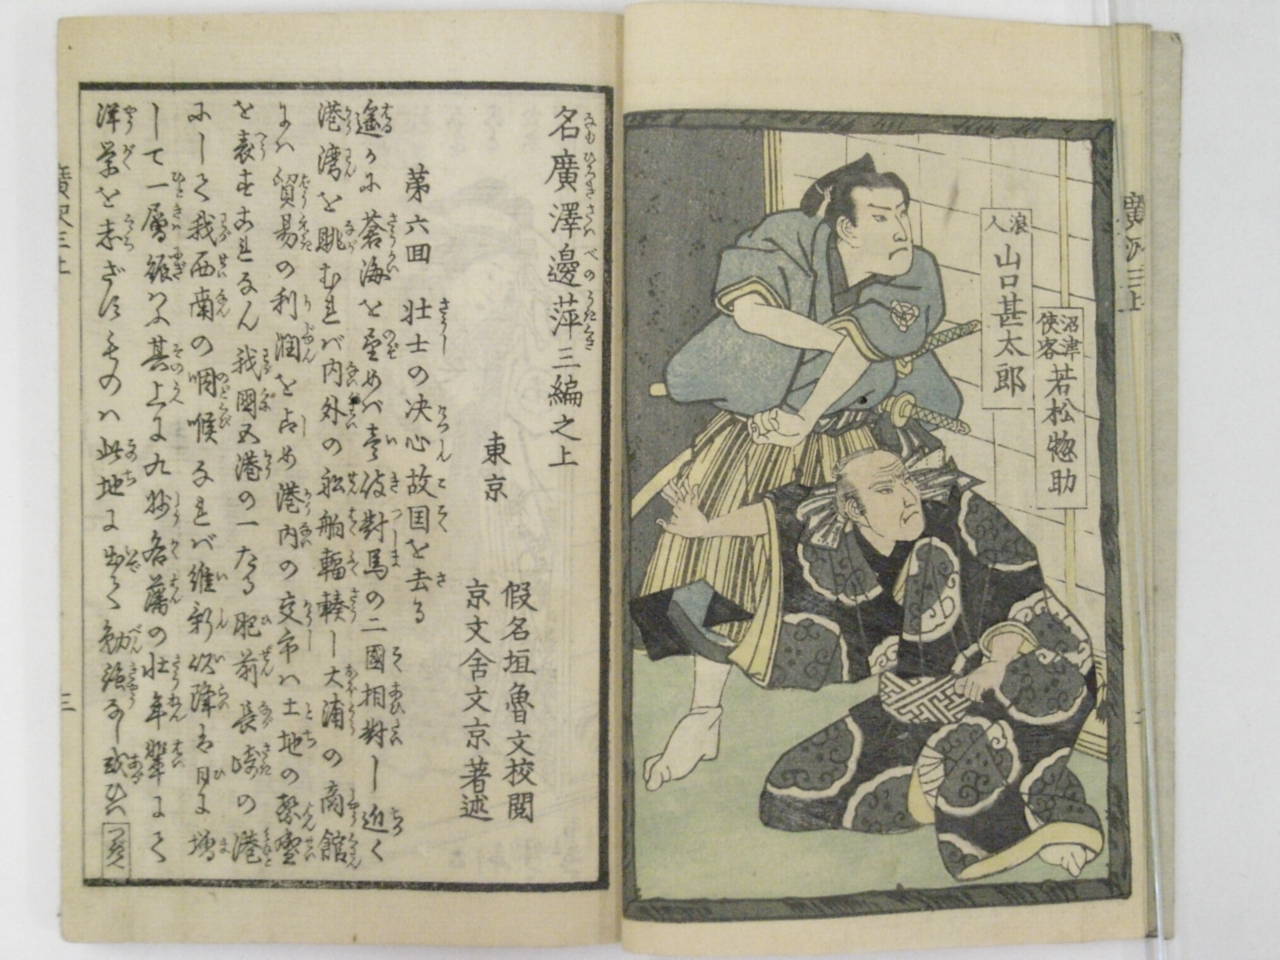 廣沢三上
浪人
山口甚太郎
沼津
侠客
若松惣助
名廣澤邊萍三編之上
東京
假名垣魯文校閲
京文舍文京著述
第六回 壮士の决心故国を去る
遥かに蒼海を望めば壱岐對馬の二國相對し近く
港湾を眺むれバ内外の舩舶輻輳し大浦の商館
にハ貿易の利潤を占め港内の交市ハ土地の繁盛
を表すあれなん我國五港の一たる肥前長崎の港
にして我西南の咽喉なれバ維新以降は日に増
して一層繁く其上に九州各藩の壮年輩にて
洋学を志ざすものハ此地に出て勉強なし或ひハ
つぎへ
廣沢三上
三